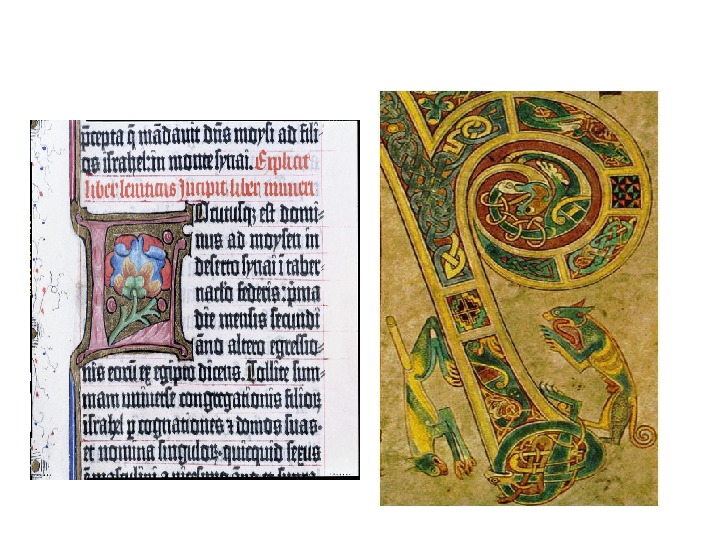 p̄cepta q̄ mādauit dn̄s moysi ad fili
os israhel: in monte synai. Explicit
liber leuiticus Incipit liber numeri
Locutusqꝫ est domi⸗
nus ad moysen in
deserto synai ī taber⸗
nac̄lo federis: p̄ma
die mensis secundi
āno altero egressio⸗
nis eorū ex egipto dicens. Tollite sum⸗
mam uniuerse congregationis filioꝝ
israhel ꝑ cognationes ⁊ domos suas·
et nomina singuloꝝ· quicquid sexus